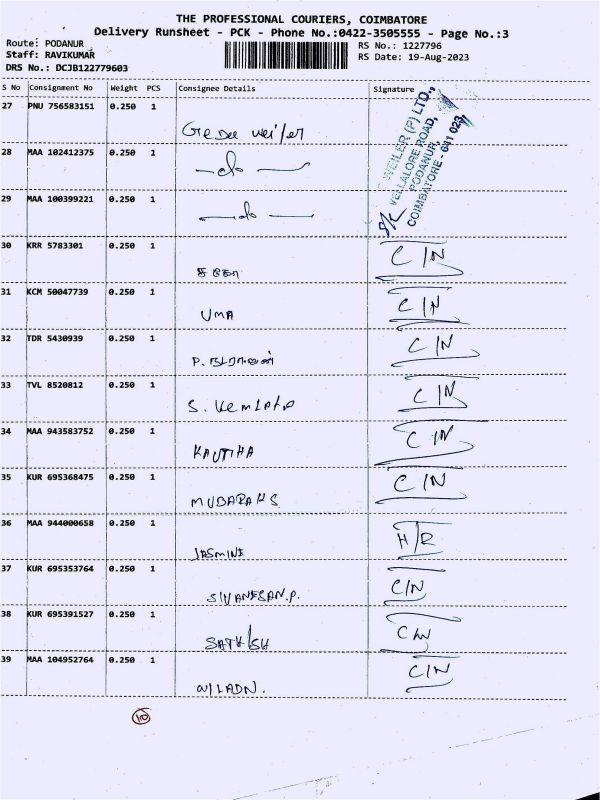 THE PROFESSIONAL COURIERS, COIMBATORE
Delivery Runsheet - PCK - Phone No.:0422-3505555 - Page No.:3
Route: PODANUR
RS No.: 1227796
Staff: RAVIKUMAR
RS Date: 19-Aug-2023
DRS No.: DCJB122779603
S No Consignment No Weight PCS Consignee Details Signature
27 PNU 756583151 0.250 1
WEILER (P) LTD.,
VELLALORE ROAD,
PODANUR,
COIMBATORE - 641 023.
28 MAA 102412375 0.250 1
29 MAA 100399221 0.250 1
30 KRR 5783301 0.250 1 C/N
31 KCM 50047739 0.250 1 UMA C/N
32 TDR 5430939 0.250 1 C/N
33 TVL 8520812 0.250 1 C/N
34 MAA 943583752 0.250 1 KAVITHA C/N
35 KUR 695368475 0.250 1 MUBARAKS C/N
36 MAA 944000658 0.250 1 JASMINE H/R
37 KUR 695353764 0.250 1 SIVANESAN.P. C/N
38 KUR 695391527 0.250 1 SATHISH C/N
39 MAA 104952764 0.250 1 C/N
10